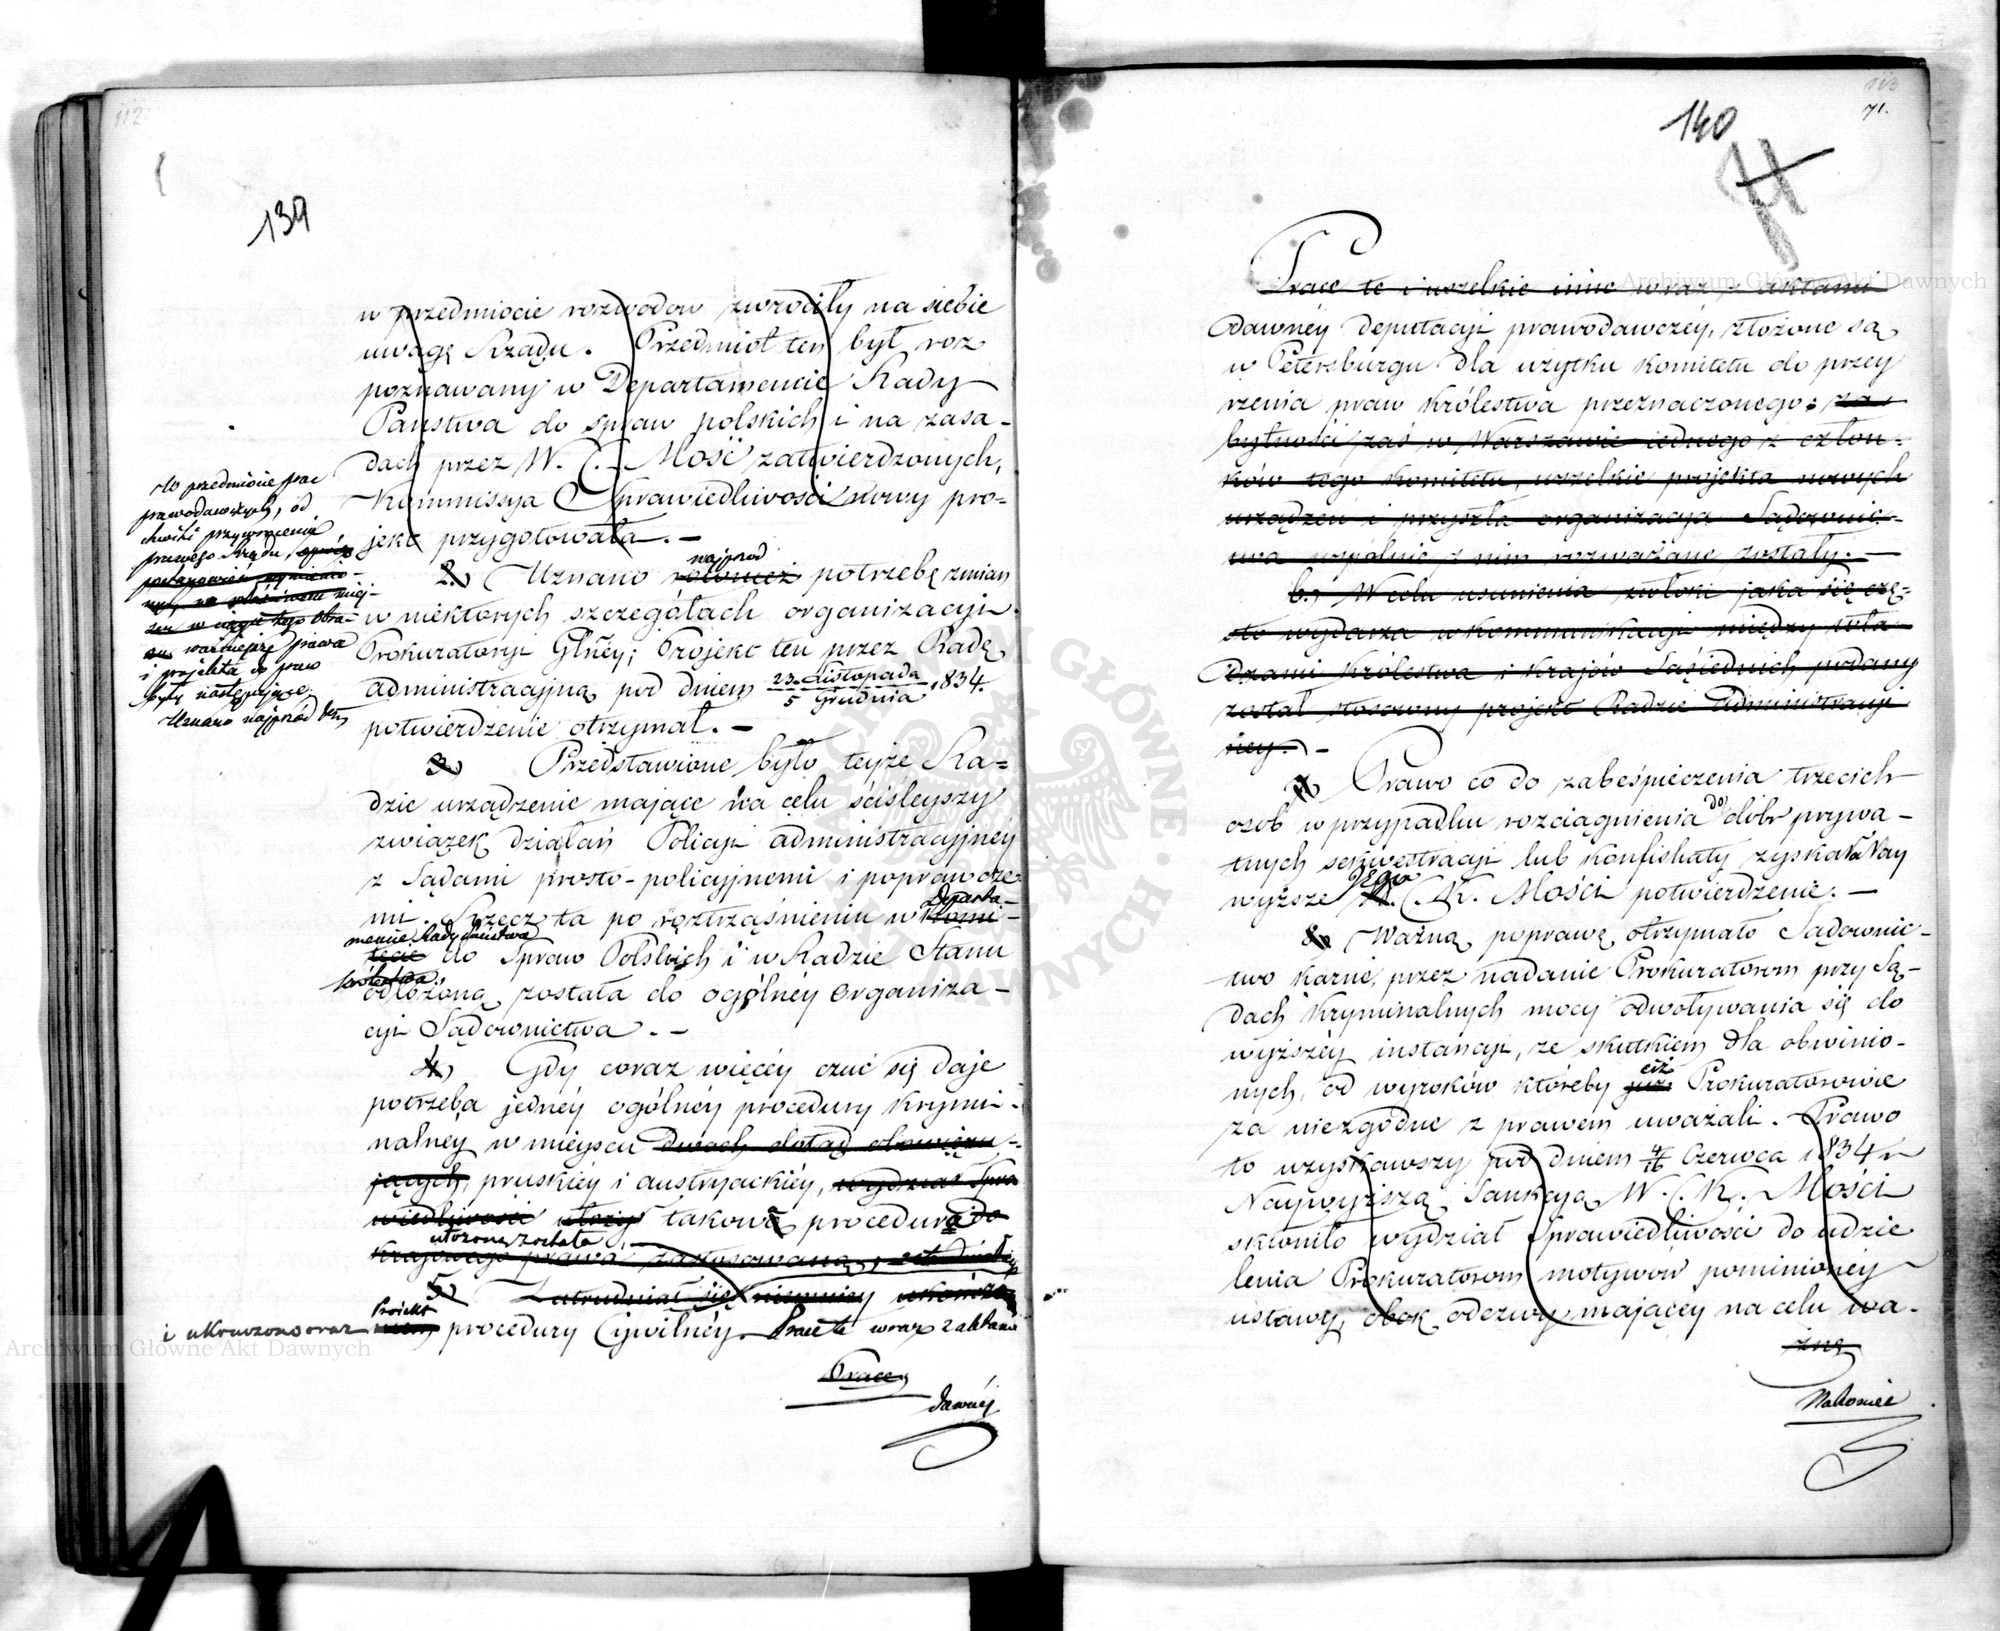 112
139
w przedmiocie rozwodow zwrociły na siebie
uwagę Rządu. Przedmiot ten był roz
poznawany w Departamencie Rady
Państwa do spraw polskich i na zasa-
dach przez N. C. Mość zatwierdzonych,
Kommissya Sprawiedliwości nowy pro-
jekt przygotowała. —
W przedmiocie prac
prawodawczych, od
chwili przywrócenia
prawego Rządu,
ważniejsze prawa
i projekta do praw
były następujące
Uznano najprzód
najprzod
2.) Uznano również potrzebę zmian
w niektorych szczegółach organizacyi
Prokuratoryi Głney; Projekt ten przez Radę
administracyjną pod dniem 23 Listopada / 5 Grudnia 1834.
potwierdzenie otrzymał. —
3.) Przedstawione było teyże Ra=
dzie urządzenie mające na celu ściśleyszy
związek działań Policyi administracyjney
z Sądami prosto-policyjnemi i poprawcze
mi. Rzecz ta po roztrząśnieniu w Komi-
Departa-
mencie Rady Państwa
tecie do Spraw Polskich i w Radzie Stanu
Królestwa
odłożoną została do ogólnéy organiza-
cyi Sądownictwa. —
4.) Gdy coraz więcéy czuć się daje
potrzeba jednéy ogólnéy procedury krymi-
nalnéy w mieysca dwóch dotąd obowiązu-
jących, pruskiéy i austryjackiéy, wydział Spra
wiedliwości ułożył takową procedurę do
ułożoną została
krajowego prawa zastosowaną,
5.) Zatrudniał się niemniey
Projekt
i ukończono oraz
procedury Cywilnéy. Prace te wraz z aktami
Prace
dawnéj
113
71.
140
71
Prace te i wszelkie inne wraz z aktami
dawnéy deputacyi prawodawczéy, złożone są
w Petersburgu dla użytku komitetu do przey
rzenia praw Królestwa przeznaczonego; za
bytności zaś w Warszawie iednego z człon-
ków tego komitetu, wszelkie projekta nowych
urządzeń i przyszła organizacya Sądownic-
twa wspólnie z nim rozważane zostały. —
6.) W celu usunienia zwłoki jaka się czę-
sto wydarza w kommunikacyi między wła
dzami Królestwa i krajów Sąsiednich podany
został stosowny projekt Radzie Administracyi
ney. —
7.) Prawo co do zabeśpieczenia trzecich
osób w przypadku rozciągnienia do dóbr prywa-
tnych sekwestracyi lub konfiskaty zyskało Nay
wyższe Jego C. K. Mości potwierdzenie. —
8.) Ważną poprawę otrzymało Sądownic-
two karne, przez nadanie Prokuratorom przy Są-
dach Kryminalnych mocy odwoływania się do
wyższéy instancyi, ze skutkiem dla obwinio-
nych, od wyroków któreby ciż Prokuratorowie
za niezgodne z prawem uważali. Prawo
to uzyskawszy pod dniem 4/16 Czerwca 1834 r.
Naywyższą Sankcyą N. C. K. Mości
skłoniło wydział Sprawiedliwości do udzie
lenia Prokuratorom motywów pominionéy
ustawy, obok odezwy mającéy na celu wa-
żne
Nakoniec
Archiwum Główne Akt Dawnych
Archiwum Główne Akt Dawnych
ARCHIWUM GŁÓWNE AKT DAWNYCH